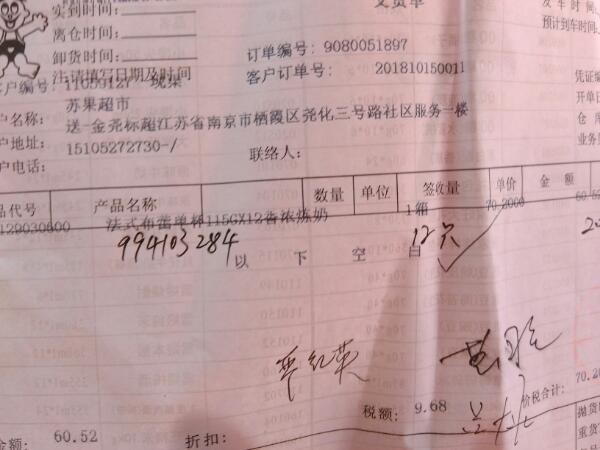 实到时间:
离仓时间:
卸货时间:
注请填写日期及时间
交货单
订单编号: 9080051897
客户订单号: 201810150011
发车时间
预计到车时间:
户编号: 11059127
苏果超市
户名称:
送-金尧标超江苏省南京市栖霞区尧化三号路社区服务一楼
户地址:
15105272730-/
户电话:
联络人:
凭证编
开单日
仓库
业务员
品代号 产品名称 数量 单位 签收量 单价 金额
129030600 法式布蕾单杯115GX12香浓炼奶 1箱 70.2000 60.52
994103284 12只
以下空白
税额: 9.68
价税合计: 70.20
金额: 60.52
折扣: